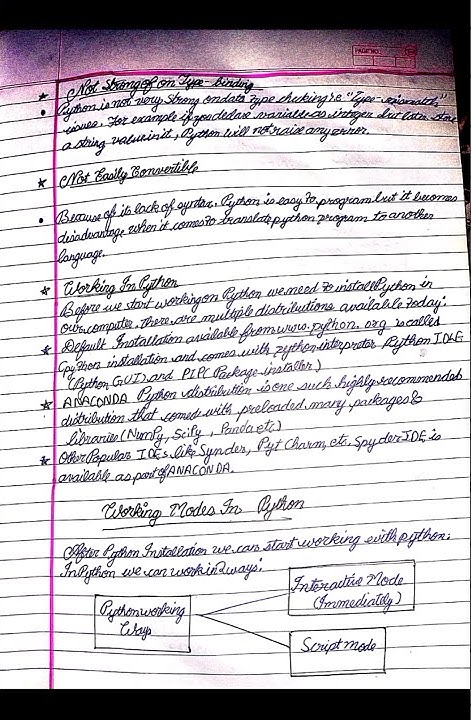 PAGE NO.
★ Not Strong of on Type-binding
• Python is not very strong on data type checking ie "Type-mismatch"
issues. For example if you declare variable as integer but later store
a string value in it, Python will not raise any error.
★ Not Easily Convertible
• Because of its lack of syntax. Python is easy to program but it becomes
disadvantage when it comes to translate python program to another
language.
★ Working In Python
Before we start working on Python we need to install Python in
our computer. There are multiple distributions available today.
★ Default Installation available from www.python.org is called
Cpython installation and comes with python interpreter Python IDLE
(Python GUI) and PIP(Package installer)
★ ANACONDA Python distribution is one such highly recommended
distribution that comed with preloaded many packages &
libraries (NumPy, SciPy, Panda etc)
★ Other Popular IDEs like Synder, Pyt Charm, etc. Spyder IDE is
available as part of ANACONDA.
Working Modes In Python
After Python Installation we can start working with python.
In Python we can work in 2 ways:
Interactive Mode
(Immediately)
Python working
Ways
Script mode